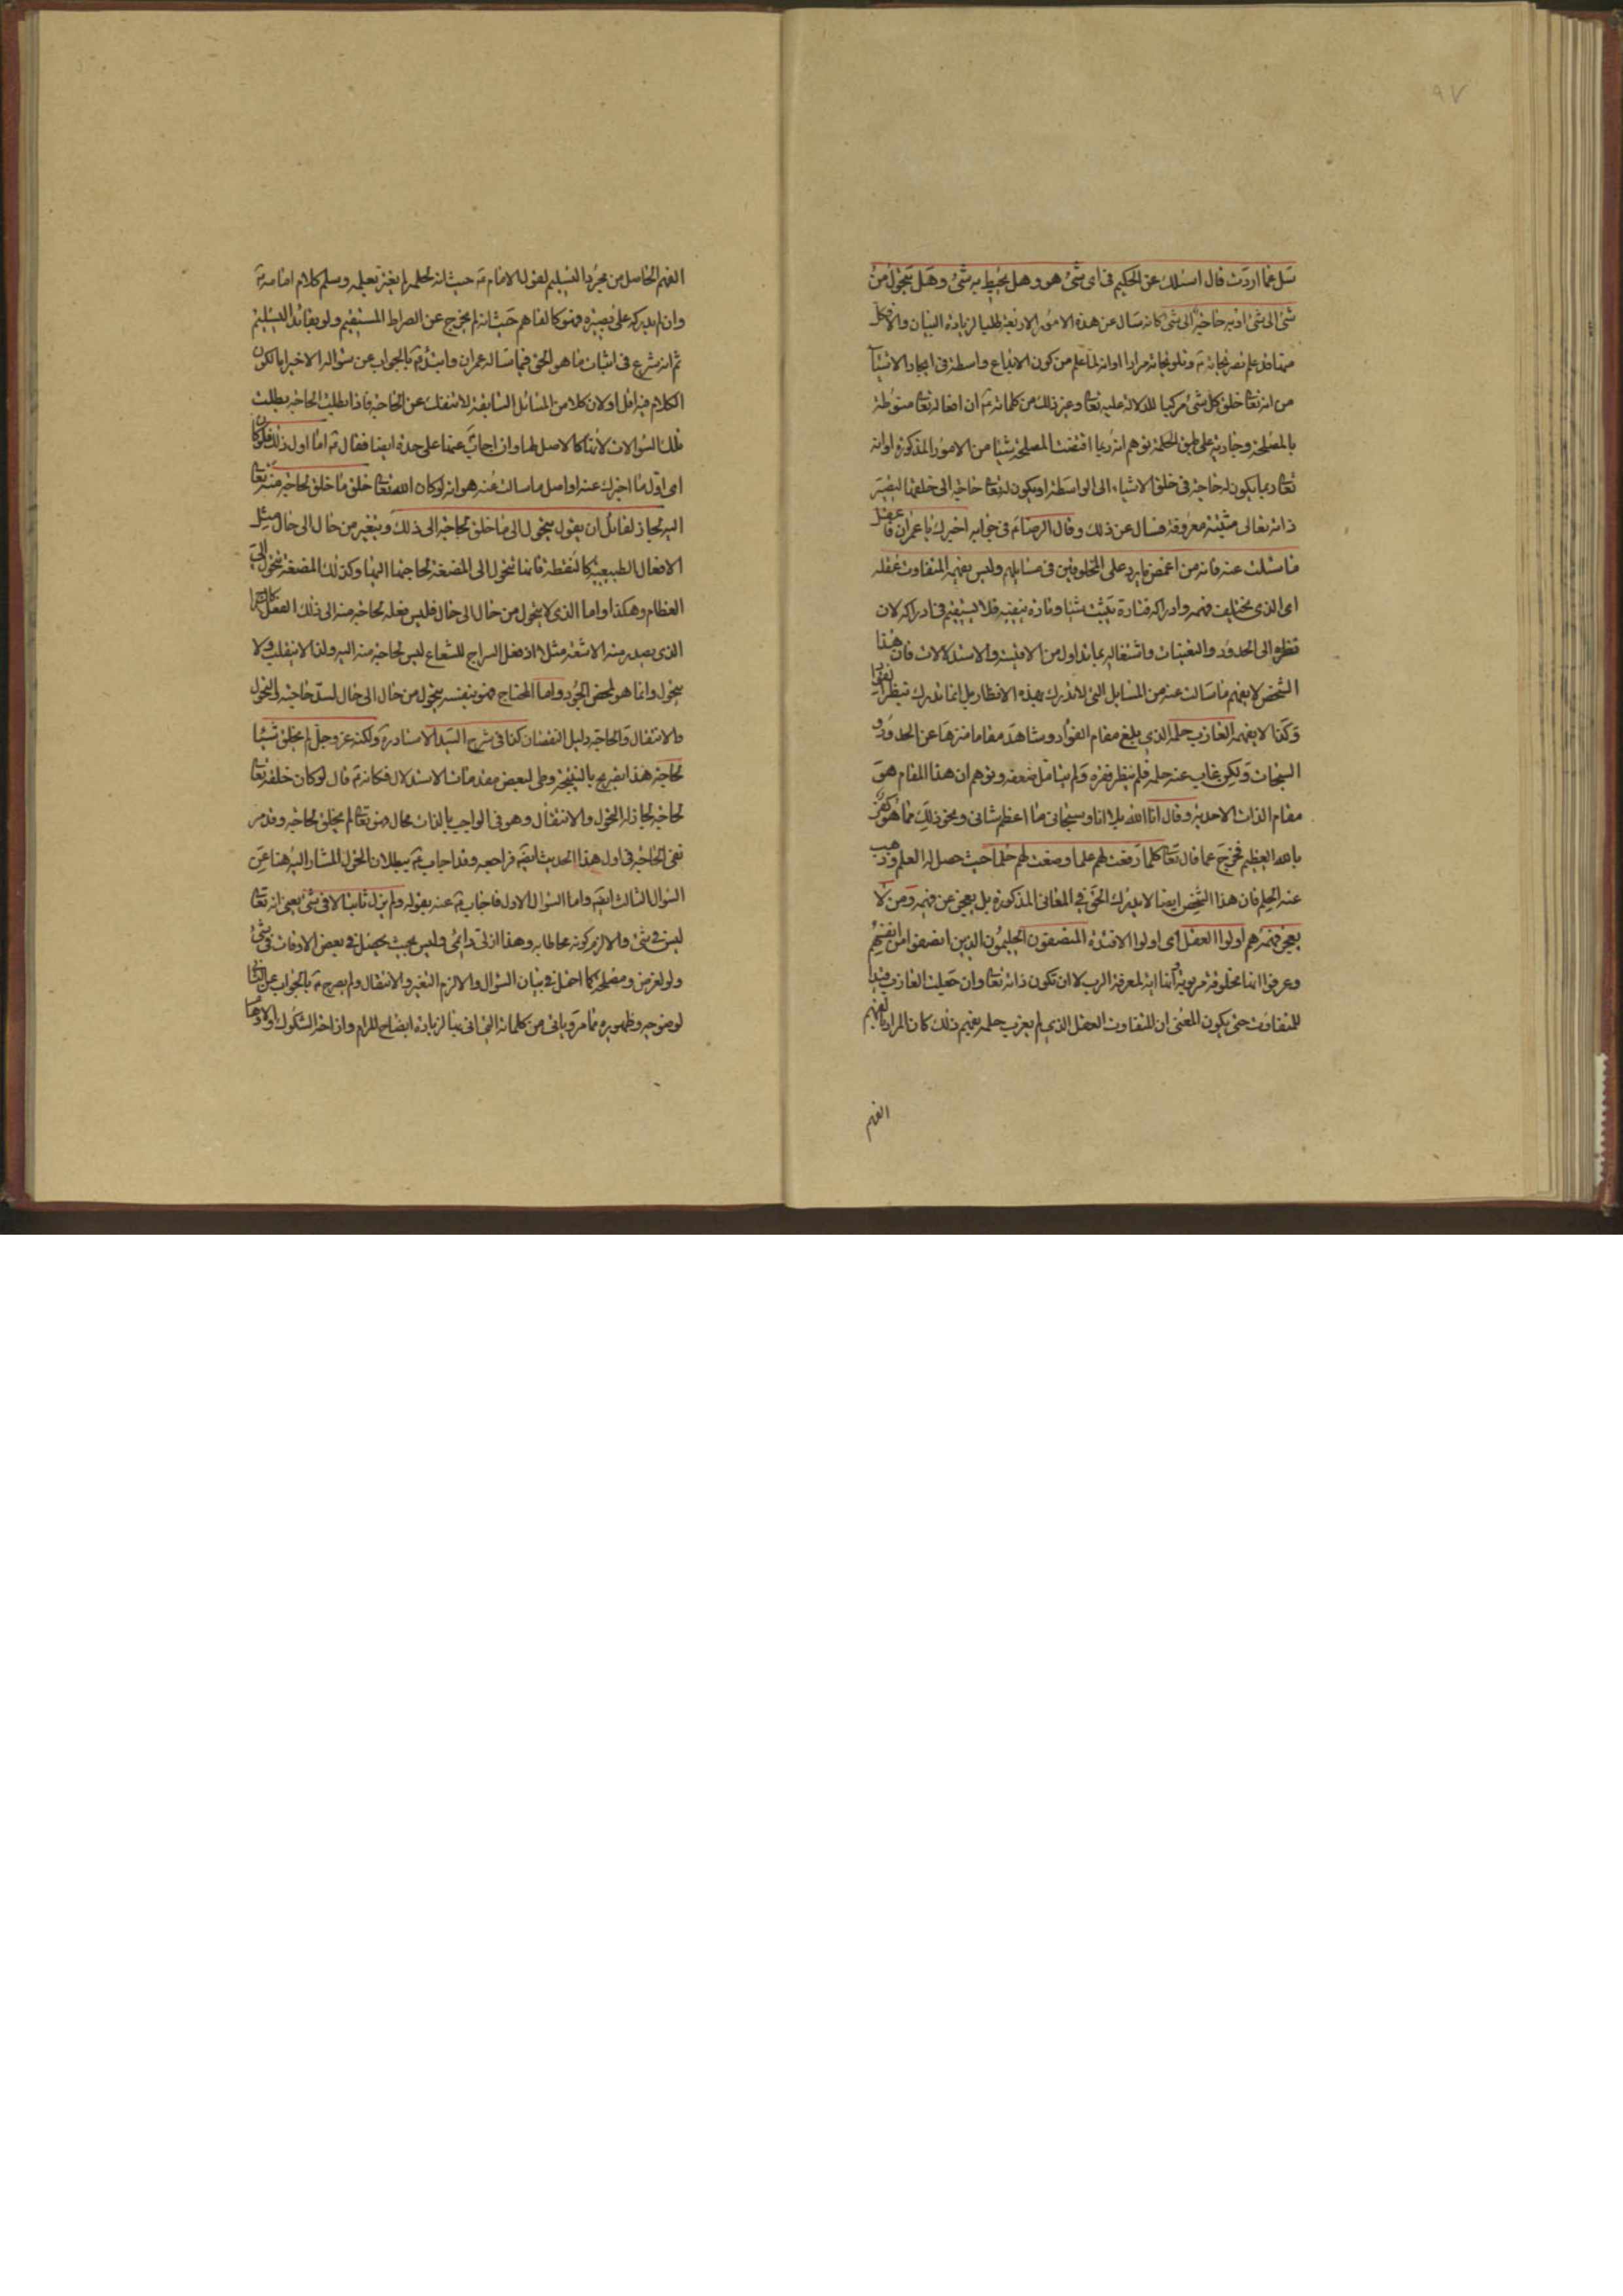 ٩٧
سل عما اردت قال اسئلك عن الحكيم فى اى شئ هو وهل يحيط به شئ وهل يتحول من
شئ الى شئ او به حاجة الى شئ كانه سال عن هذه الامور الاربعة طلبا لزيادة البيان والا فكل
منها قد علم تصريحا منه ع وتلويحا منه مرارا او انه لما علم من كون الابداع واسطة فى ايجاد الاشيآ
من انه تعا خلق كل شئ مركبا للدلالة عليه تعا وغير ذلك من كلماته ع ان افعاله تعا منوطة
بالمصلحة وجارية على طبق الحكمة توهم انه ربما اقتضت المصلحة شيئا من الامور المذكورة او انه
تعا ربما يكون له حاجة فى خلق الاشياء الى الواسطة او يكون له تعا حاجة الى خلقها ليصير
ذاته تعالى متبينة معروفة فسال عن ذلك وقال الرضا ع فى جوابه اخبرك يا عمران فاعقل
ما سئلت عنه فانه من اغمض ما يرد على المخلوقين فى مسايلهم وليس يفهمه المتفاوت عقله
اى الذى يختلف فهمه وادراكه فتارة يثبت شيئا وتارة ينفيه فلا يستقيم فى ادراكه لان
نظره الى الحدود والتعينات واشتغاله بما تداول من الاقيسة والاستدلالات فان هذا
الشخص لا يفهم ما سالت عنه من المسايل التى لا تدرك بهذه الانظار بل انما تدرك بنظر
وكذا لا يفهمه العازب حلمه الذى بلغ مقام الفؤاد وشاهد مقاما منزها عن الحدود و
السبحات ولكن غاب عنه حلمه فلم ينظر فقره ولم يتامل ضعفه وتوهم ان هذا المقام هو
مقام الذات الاحدية وقال انا الله بلا انا وسبحانى ما اعظم شانى ونحو ذلك مما هو كفر
بالله العظيم فخرج عما قال تعا كلما رفعت لهم علما وضعت لهم حلما حيث حصل له العلم وذهب
عنه الحلم فان هذا الشخص ايضا لا يدرك الحق فى المعانى المذكورة بل يعجز عن فهمه ومن لا
يعجز فهمه هم اولوا العقل اى اولوا الافئدة المنصفون الحليمون الذين انصفوا من انفسهم
وعرفوا انها مخلوقة مربوبة وانها اية لمعرفة الرب لا ان تكون ذاته تعا وان جعلت العازب قيدا
للمتفاوت حتى يكون المعنى ان المتفاوت العقل الذى لم يعزب حلمه يفهم ذلك كان المراد بالفهم
الفهم
الفهم الحاصل من مجرد التسليم لقول الامام ع حيث انه لحلمه لم يغتر بعلمه وسلم كلام امامه ع
وان لم يدركه على بصيرة فهو كالفاهم حيث انه لم يخرج عن الصراط المستقيم ولو بقائد التسليم
ثم انه شرع فى اثبات ما هو الحق فيما ساله عمران وابتدء ع بالجواب عن سئواله الاخير اما لكون
الكلام فيه اقل او لان كلا من المسائل السابقة لا تنفك عن الحاجة فاذا بطلت الحاجة بطلت
تلك السئوالات لانها كالاصل لها وان اجاب ع عنها على حدة ايضا فقال ع اما اول ذلك فلو كان
اى اول ما اخبرك عنه او اصل ما سالت عنه هو انه لو كان الله تعا خلق ما خلق لحاجة منه تعا
اليه لجاز لقائل ان يقول يتحول الى ما خلق لحاجته الى ذلك ويتغير من حال الى حال مثل
الافعال الطبيعية كالنطفة فانها تتحول الى المضغة لحاجتها اليها وكذلك المضغة تتحول الى
العظام وهكذا واما الذى لا يتحول من حال الى حال فليس فعله لحاجة منه الى ذلك الفعل كالسراج
الذى يصدر منه الاشعة مثلا اذ فعل السراج للشعاع ليس لحاجة منه اليه ولذا لا ينقلب ولا
يتحول وانما هو لمحض الجود واما المحتاج فهو بنفسه يتحول من حال الى حال لسد حاجته والتحول
والانتقال والحاجة دليل النقصان كذا فى شرح السيد الاستاد ره ولكنه عز وجل لم يخلق شيئا
لحاجة هذا تصريح بالنتيجة وطى لبعض مقدمات الاستدلال فكانه ع قال لو كان خلقه تعا
لحاجة لجاز له التحول والانتقال وهو فى الواجب بالذات محال فهو تعا لم يخلق لحاجة وقد مر
نفى الحاجة فى اول هذا الحديث ايضا فراجعه وقد اجاب ع ببطلان التحول المشار اليه هنا عن
السئوال الثالث ايضا واما السئوال الاول فاجاب ع عنه بقوله ولم يزل ثابتا لا فى شئ يعنى انه تعا
ليس فى شئ والا لزم كونه محاطا به وهذا ازلى دائمى وليس بحيث يحصل فى بعض الاوقات فى شئ
ولو لغرض ومصلحة كما احتمل فى بيان السئوال والا لزم التغير والانتقال ولم يصرح ع بالجواب عن الثانى
لوضوحه وظهوره مما مر وياتى من كلماته التى اتى بها لزيادة ايضاح المرام وازاحة الشكوك والاوهام